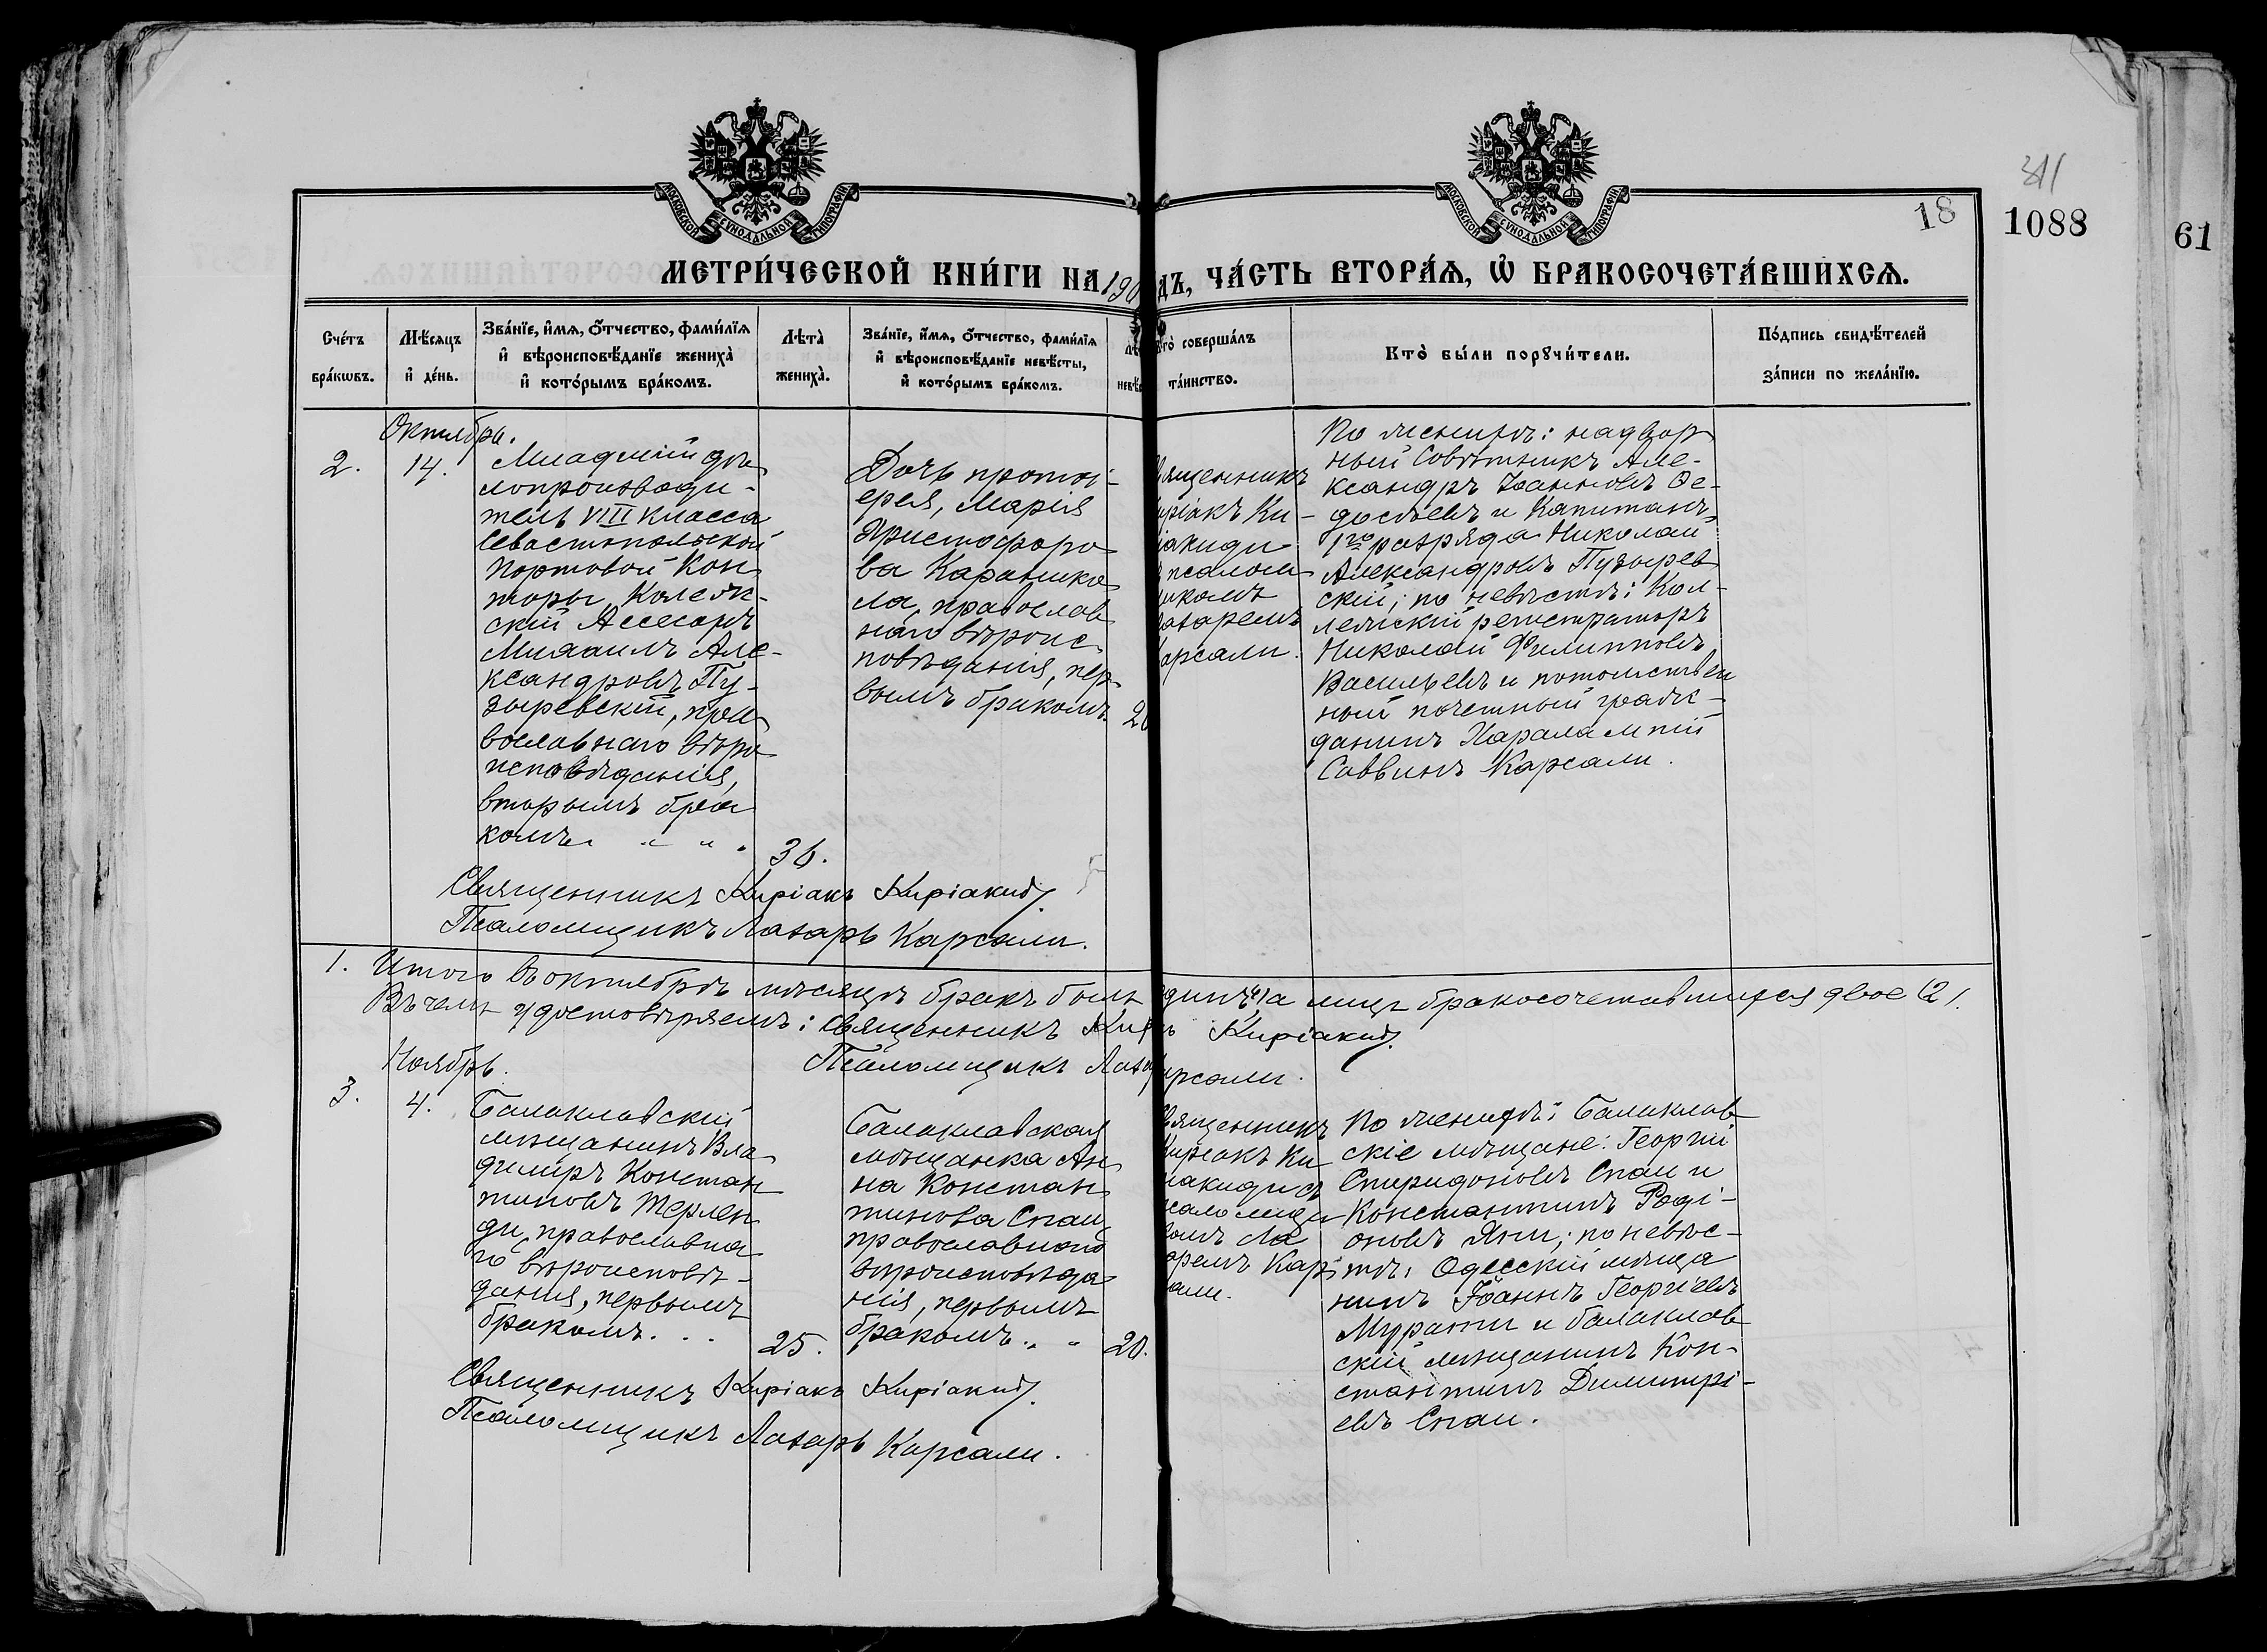 311
18
1088
61
МОСКОВСКОЙ СУНОДАЛЬНОЙ ТИПОГРАФІИ
МОСКОВСКОЙ СУНОДАЛЬНОЙ ТИПОГРАФІИ
МЕТРИ́ЧЕСКОЙ КНИ́ГИ НА 190
ДЪ, ЧА́СТЬ ВТОРА́Ѧ, Ѽ БРАКОСОЧЕТА́ВШИХСѦ.
Сче́тъ
бра́кѡвъ.
Мѣ́сяцъ
и҆ де́нь.
Зва́нїе, и҆́мѧ, ѻ҆́тчество, фами́лїѧ
и҆ вѣроисповѣ́данїе жениха̀
и҆ кото́рымъ бра́комъ.
Лѣта̀
жениха̀.
Зва́нїе, и҆́мѧ, ѻ҆́тчество, фами́лїѧ
и҆ вѣроисповѣ́данїе невѣ́сты,
и҆ кото́рымъ бра́комъ.
Кто̀ соверша́лъ
та́инство.
Кто̀ бы́ли порꙋчи́тели.
По́дпись свидѣ́телей
за́писи по жела́нїю.
Октябрь.
2.
14.
Младшій дѣ
лопроизводи-
тель VIII класса
Севастопольской
Портовой Кон
торы, Колеж-
скій Ассесоръ
Михаилъ Але-
ксандровъ Пу-
зыревскій, пра
вославнаго вѣро
исповѣданія,
вторымъ бра
комъ
36.
Дочь протоі-
ерея, Марія
Христофоро
ва Каратико
ла, православ
наго вѣроис
повѣданія, пер
вымъ бракомъ.
20
вященникъ
иріакъ Ки-
іакиди
псалом
икомъ
азаремъ
арсали.
По женихѣ: надвор
ный Совѣтникъ Але-
ксандръ Іоанновъ Ѳе-
досѣевъ и Капитанъ
1го разряда Николай
Александровъ Пузырев
скій; по невѣстѣ: Кол-
лежскій регистраторъ
Николай Филипповъ
Васильевъ и потомствен
ный почетный граж-
данинъ Харалампій
Саввинъ Карсали.
Священникъ Киріакъ Киріакиди.
Псаломщикъ Лазарь Карсали.
1. Итого въ октябрѣ мѣсяцѣ бракъ былъ
динъ(1) а лицъ бракосочетавшихся двое (2).
Въ чемъ удостовѣряемъ: Священникъ Кирі
ъ Киріакиди.
Псаломщикъ Лаза
арсали.
Ноябрь.
3.
4.
Балаклавскій
мѣщанинъ Вла
димиръ Констан
тиновъ Терлен
ди, православна
го вѣроисповѣ-
данія, первымъ
бракомъ. . .
25.
Балаклавская
мѣщанка Ан
на Констан
тинова Спаи,
православнаго
вѣроисповѣда
нія, первымъ
бракомъ.
20.
вященникъ
иріакъ Ки
іакиди съ
саломщи
омъ Ла
аремъ Кар
али.
По женихѣ: Балаклав
скіе мѣщане: Георгій
Спиридоновъ Спаи и
Константинъ Роді-
оновъ Яни; по невѣс-
тѣ: Одесскій мѣща
нинъ Іоаннъ Георгіевъ
Мурати и балаклав
скій мѣщанинъ Кон-
стантинъ Димитрі-
евъ Спаи.
Священникъ Киріакъ Киріакиди.
Псаломщикъ Лазарь Карсали.